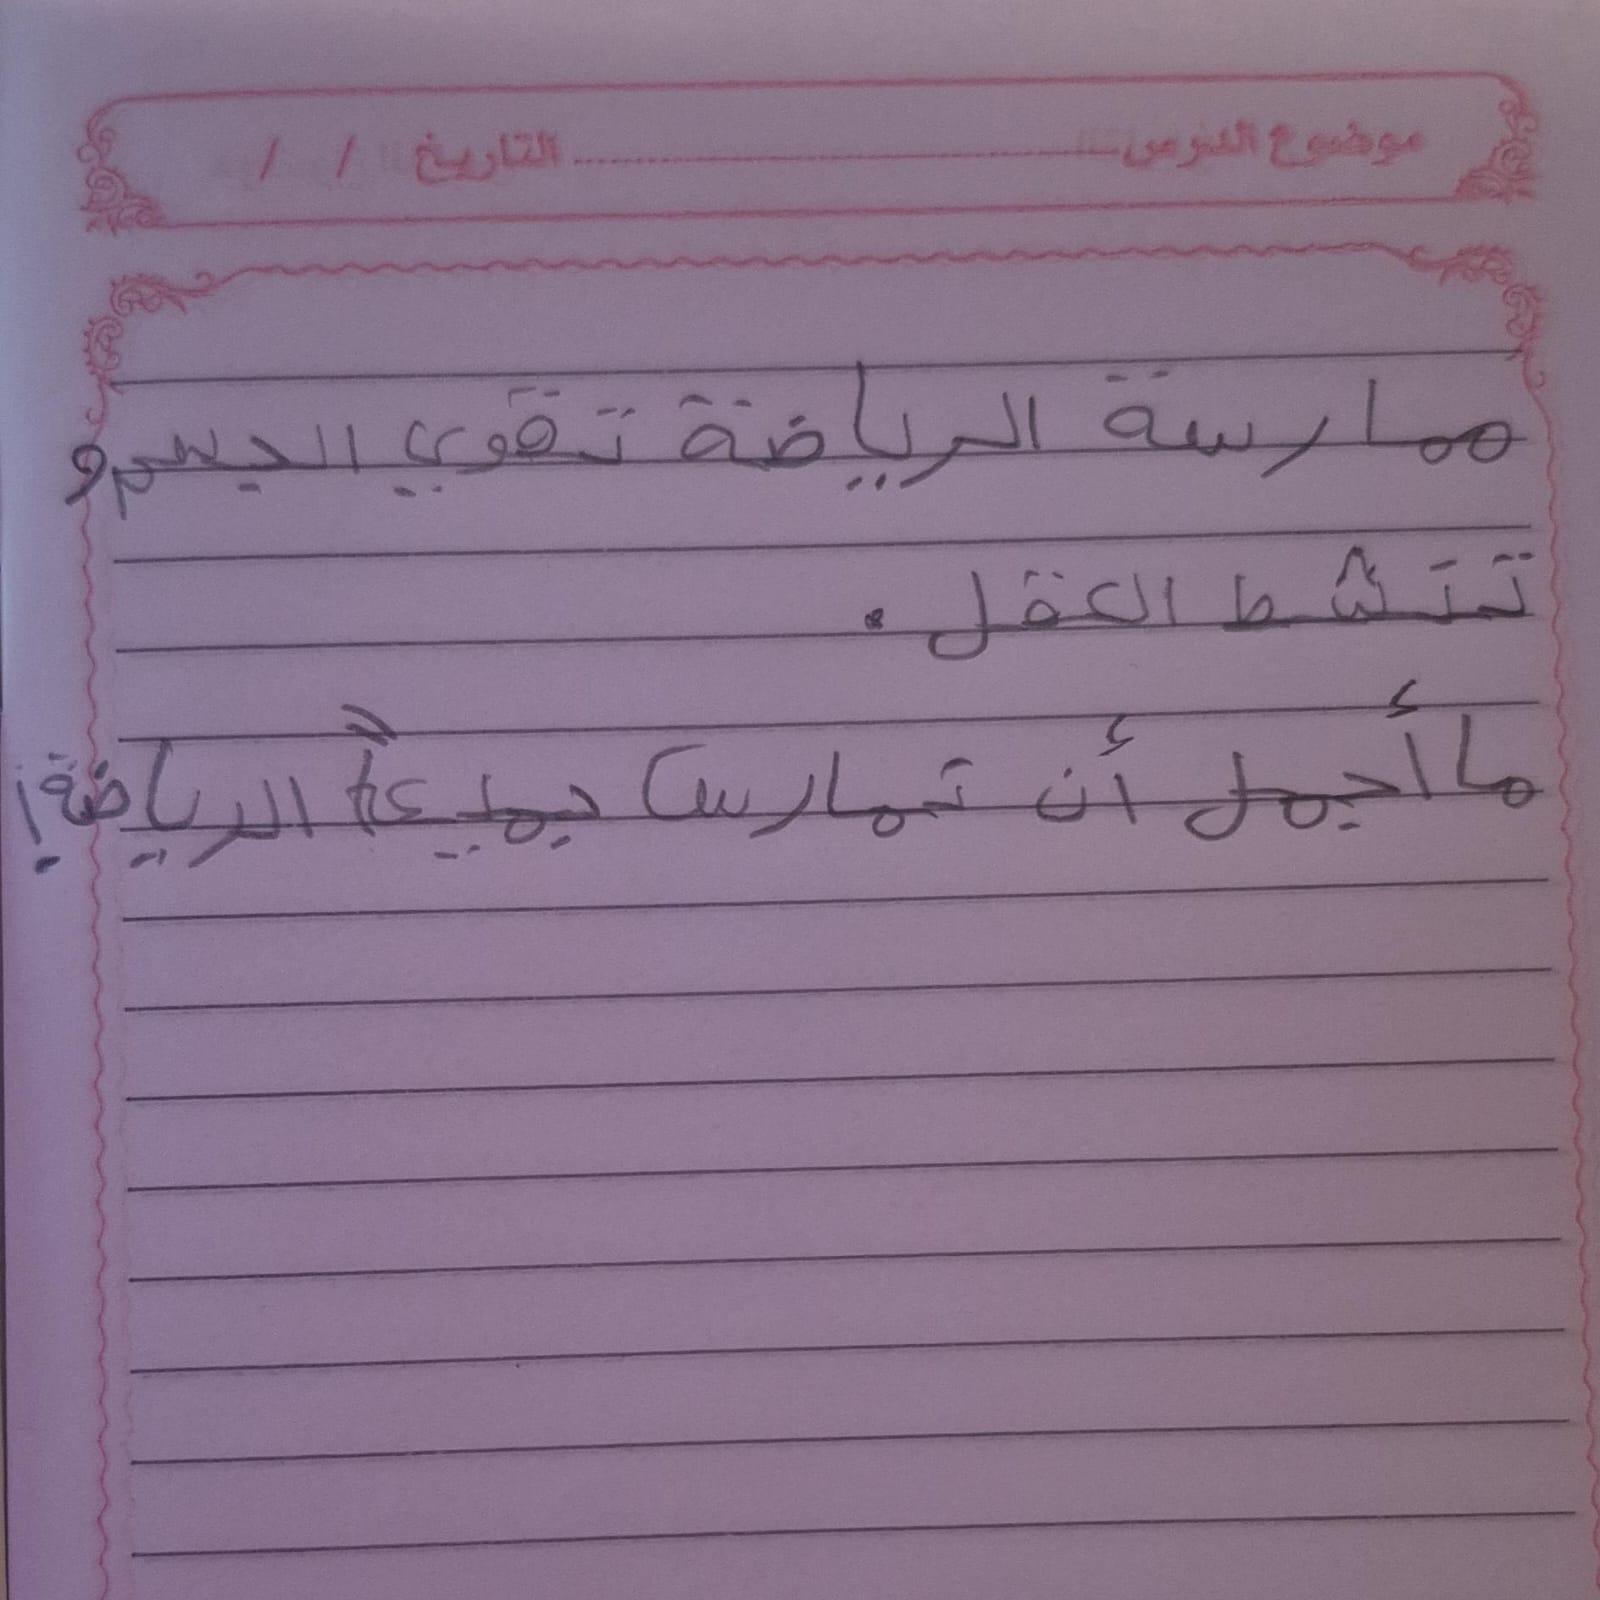 موضوع الدرس ................ التاريخ / /
ممارسة الرياضة تقوي الجسم و
تنشط العقل .
ما أجمل أن تمارس جميعاً الرياضة!